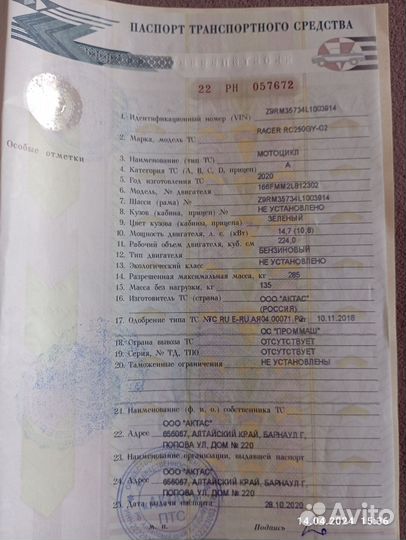 ПАСПОРТ ТРАНСПОРТНОГО СРЕДСТВА
22 РН 057672
Особые отметки
1. Идентификационный номер (VIN) Z9RM35734L1003914
2. Марка, модель ТС RACER RC250GY-C2
3. Наименование (тип ТС) МОТОЦИКЛ
4. Категория ТС (А, В, С, D, прицеп) A
5. Год изготовления ТС 2020
6. Модель, № двигателя 166FMM2L812302
7. Шасси (рама) № Z9RM35734L1003914
8. Кузов (кабина, прицеп) № НЕ УСТАНОВЛЕНО
9. Цвет кузова (кабины, прицепа) ЗЕЛЕНЫЙ
10. Мощность двигателя, л. с. (кВт) 14,7 (10,8)
11. Рабочий объем двигателя, куб. см 224,0
12. Тип двигателя БЕНЗИНОВЫЙ
13. Экологический класс НЕ УСТАНОВЛЕНО
14. Разрешенная максимальная масса, кг 285
15. Масса без нагрузки, кг 135
16. Изготовитель ТС (страна) ООО "АКТАС"
(РОССИЯ)
17. Одобрение типа ТС № ТС RU E-RU.АЯ04.00071.Р2 10.11.2016
ОС "ПРОММАШ"
18. Страна вывоза ТС ОТСУТСТВУЕТ
19. Серия, № ТД, ТПО ОТСУТСТВУЕТ
20. Таможенные ограничения НЕ УСТАНОВЛЕНЫ
21. Наименование (ф. и. о.) собственника ТС
ООО "АКТАС"
22. Адрес 656067, АЛТАЙСКИЙ КРАЙ, БАРНАУЛ Г,
ПОПОВА УЛ, ДОМ № 220
23. Наименование организации, выдавшей паспорт
ООО "АКТАС"
24. Адрес 656067, АЛТАЙСКИЙ КРАЙ, БАРНАУЛ Г,
ПОПОВА УЛ, ДОМ № 220
25. Дата выдачи паспорта 28.10.2020
М. П. Подпись
ПТС
14.04.2024 15:36
Avito